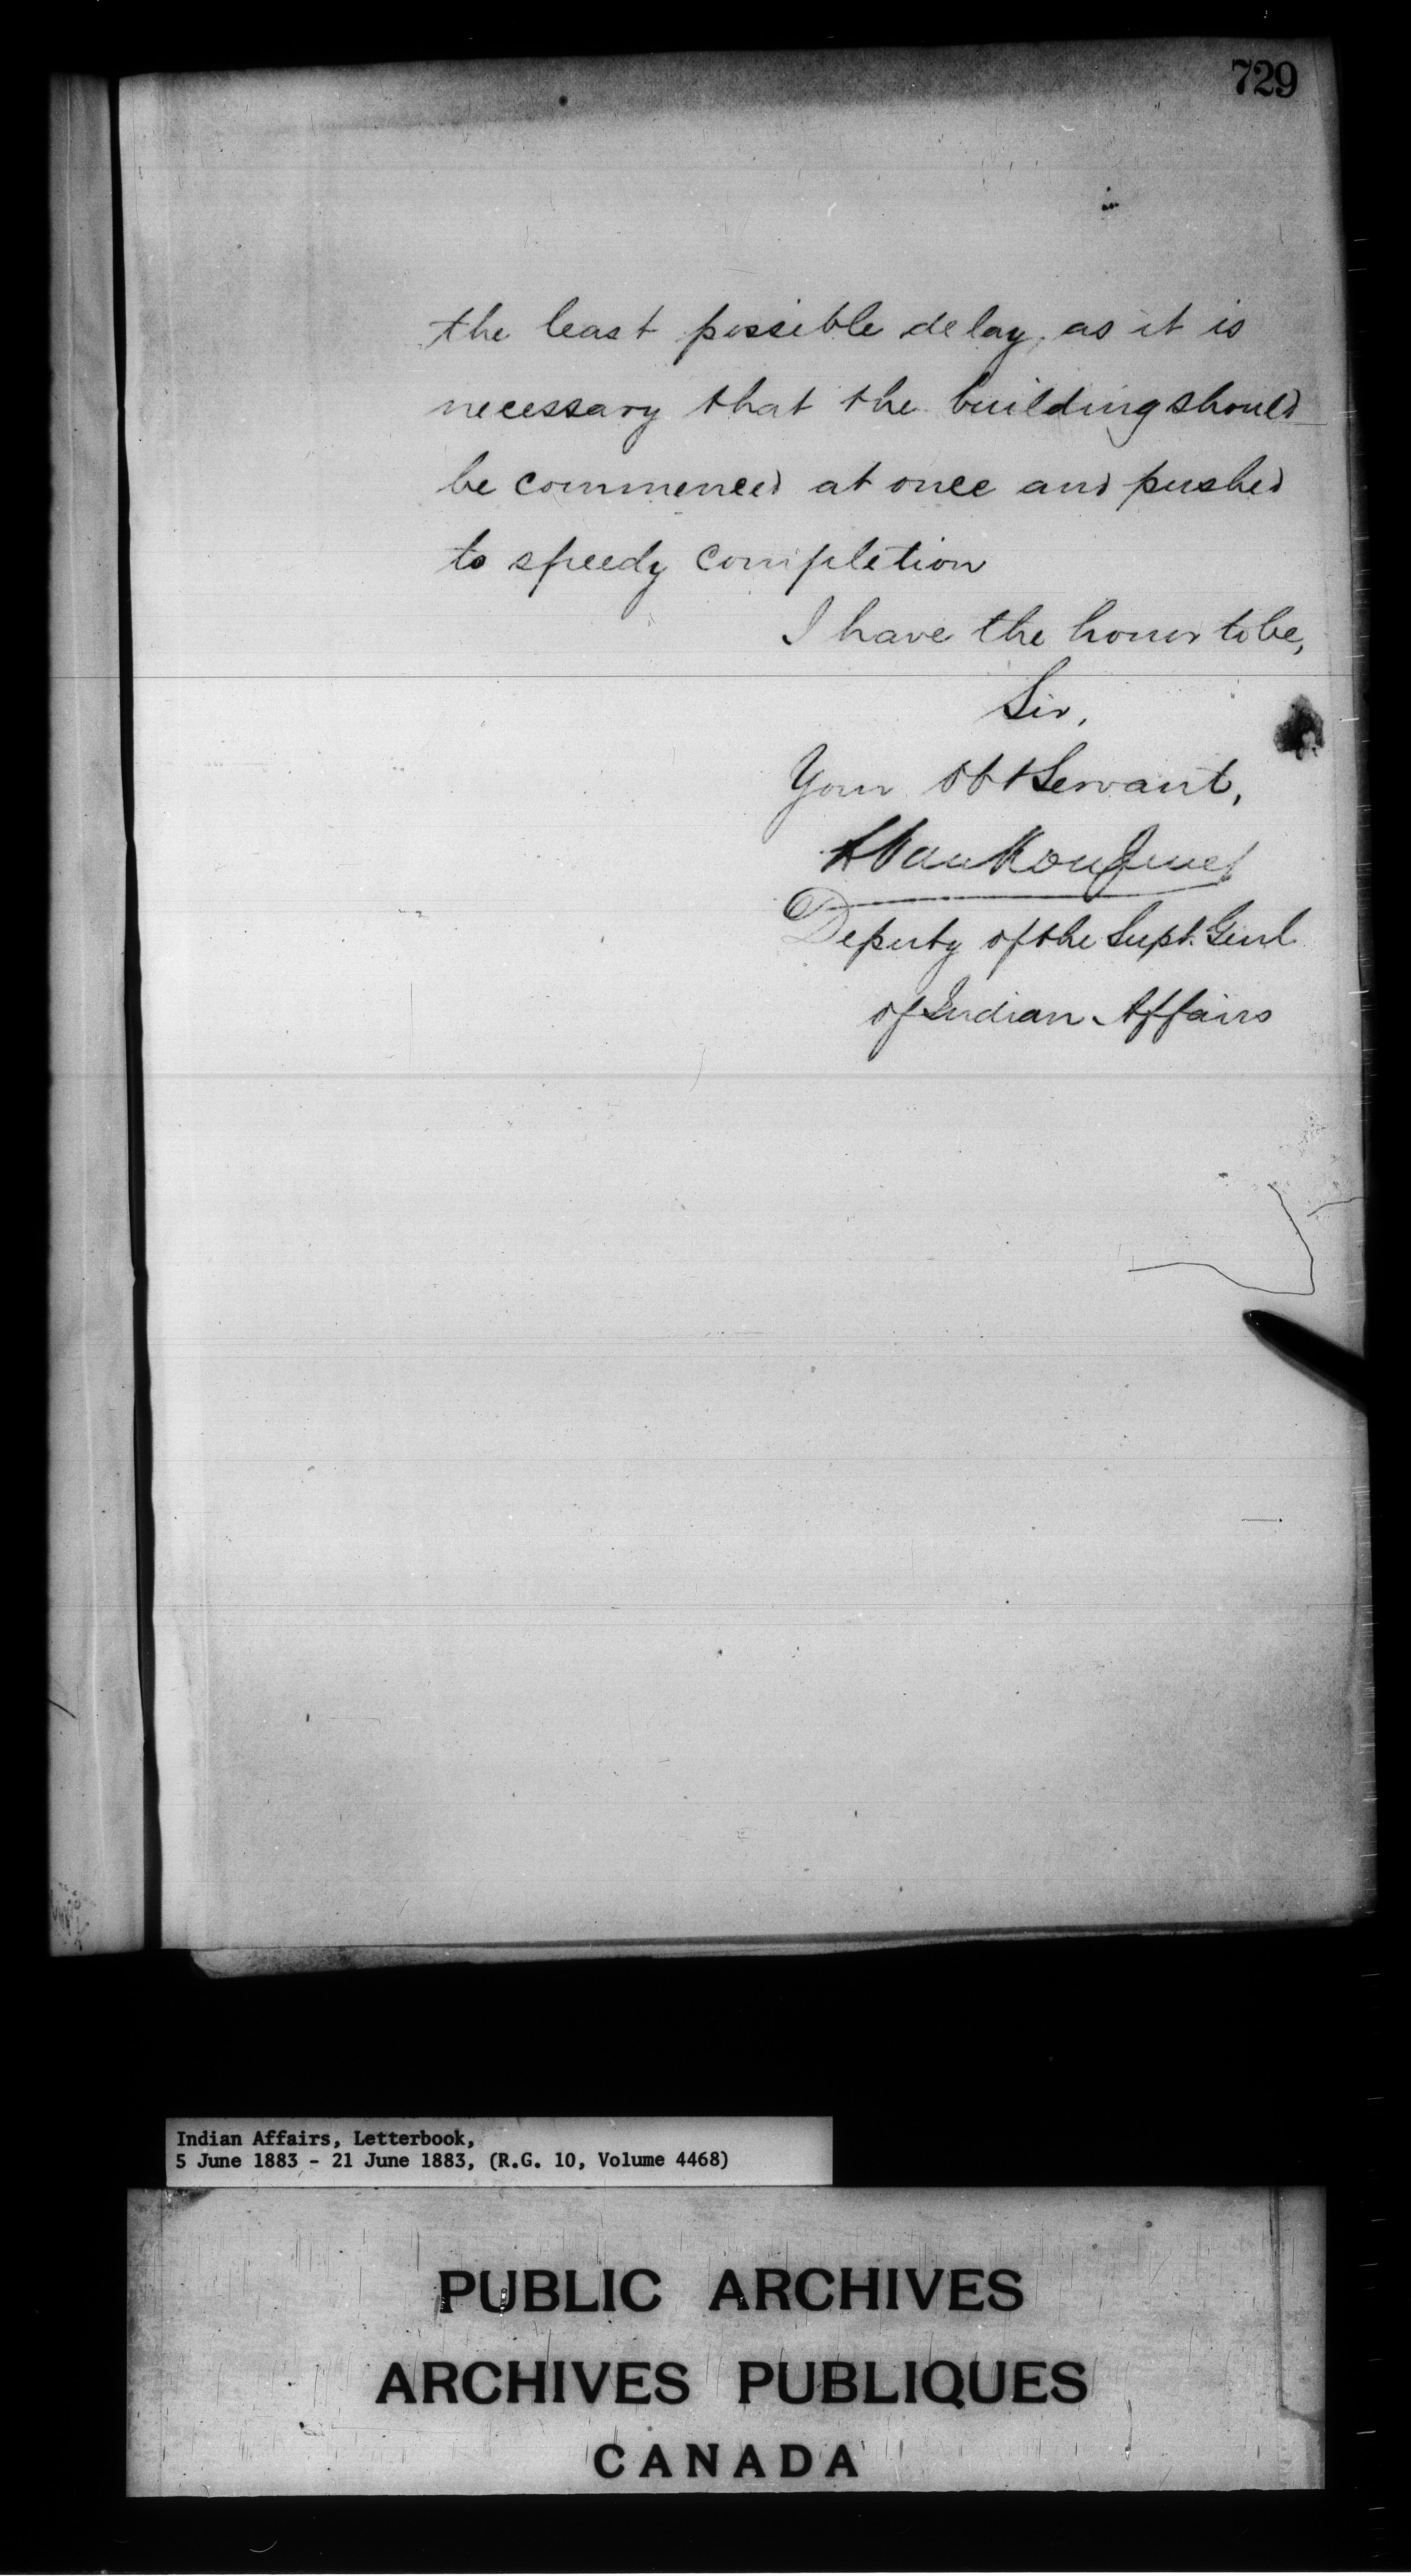 729
the least possible delay, as it is
necessary that the building should
be commenced at once and pushed
to speedy completion
I have the honor to be,
Sir,
Your obt Servant,
L VanKoughnet
Deputy of the Supt. Genl
of Indian Affairs
Indian Affairs, Letterbook,
5 June 1883 - 21 June 1883, (R.G. 10, Volume 4468)
PUBLIC ARCHIVES
ARCHIVES PUBLIQUES
CANADA